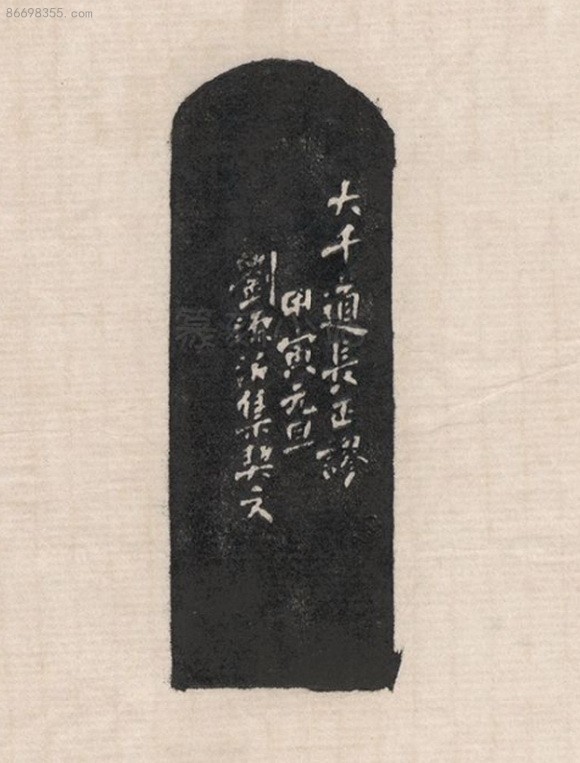 86698355.com
大千道長正謬
甲寅元旦
劉源沂集契文